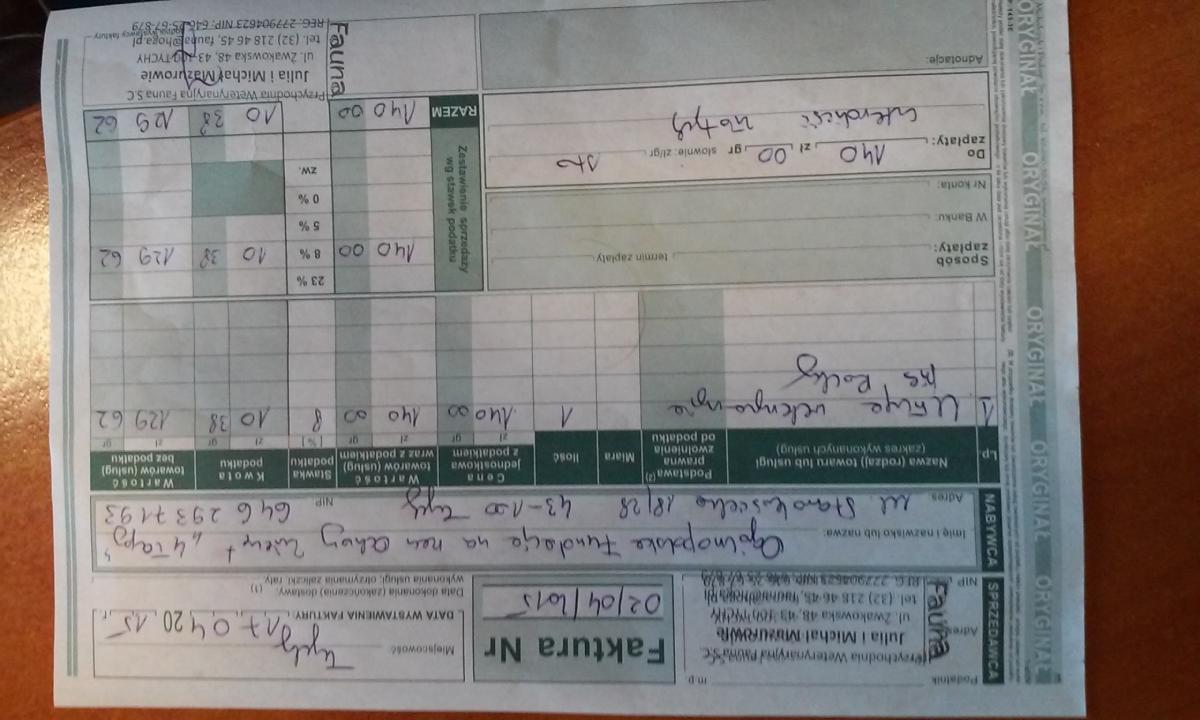 ORYGINAŁ ORYGINAŁ ORYGINAŁ ORYGINAŁ ORYGINAŁ ORYGINAŁ
SPRZEDAWCA
Podatnik
m.p.
Przychodnia Weterynaryjna Fauna S.C.
Julia i Michał Mazurowie
ul. Zwakowska 48, 43-100 TYCHY
tel. (32) 218 46 45, fauna@hoga.pl
Fauna
Adres
NIP
Faktura Nr
02/04/2015
Miejscowość
Tychy
DATA WYSTAWIENIA FAKTURY
17 04 2015 r.
Data dokonania (zakończenia) dostawy: (1)
wykonania usługi; otrzymania zaliczki, raty
NABYWCA
Imię i nazwisko lub nazwa: Ogólnopolska Fundacja na rzecz Ochrony Zwierząt „4 Łapy"
Adres ul. Starokościelna 18/28 43-100 Tychy NIP 646 293 71 93
Lp
Nazwa (rodzaj) towaru lub usługi
(zakres wykonanych usług)
Podstawa (2) prawna zwolnienia od podatku
Miara
Ilość
Cena jednostkowa z podatkiem
zł gr
Wartość towarów (usług) wraz z podatkiem
zł gr
Stawka podatku
[%]
Kwota podatku
zł gr
Wartość towarów (usług) bez podatku
zł gr
1 Usługa weterynaryjna 1 140 00 140 00 8 10 38 129 62
pies Rocky
Sposób zapłaty:
termin zapłaty
W Banku:
Nr konta:
Zestawienie sprzedaży wg stawek podatku
23 %
140 00 8 % 10 38 129 62
5 %
0 %
zw.
RAZEM 140 00 10 38 129 62
Do zapłaty: 140 zł 00 gr słownie: zł/gr sto
czterdzieści złotych
Adnotacje:
Fauna
Przychodnia Weterynaryjna Fauna S.C.
Julia i Michał Mazurowie
ul. Zwakowska 48, 43-100 TYCHY
tel. (32) 218 46 45, fauna@hoga.pl
REG. 277904623 NIP: 646-25-67-879